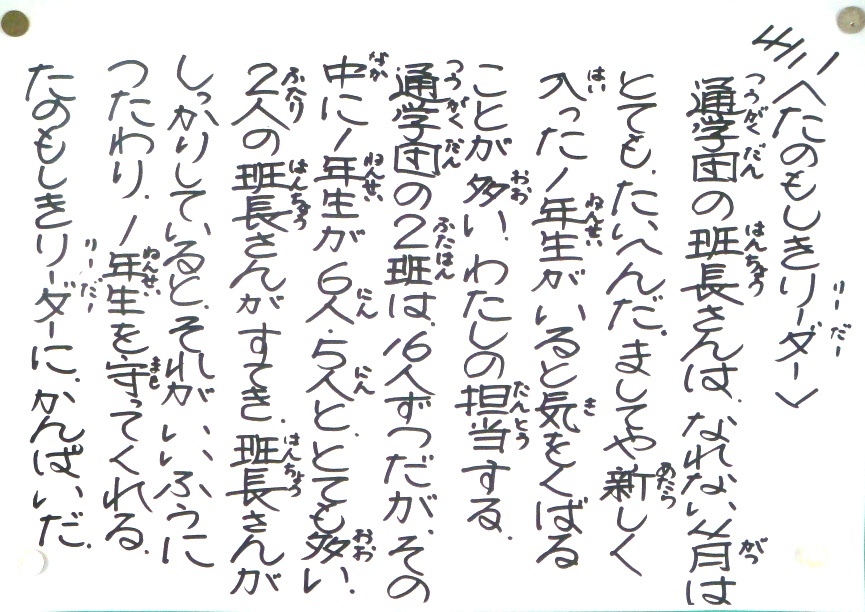 〈たのもしきリーダー〉
通学団の班長さんは、なれない4月は
とても、たいへんだ。ましてや新しく
入った1年生がいると気をくばる
ことが多い。わたしの担当する、
通学団の2班は、16人ずつだが、その
中に1年生が6人、5人と、とても多い。
2人の班長さんがすてき。班長さんが
しっかりしていると、それがいいふうに
つたわり、1年生を守ってくれる。
たのもしきリーダーに、かんぱいだ。